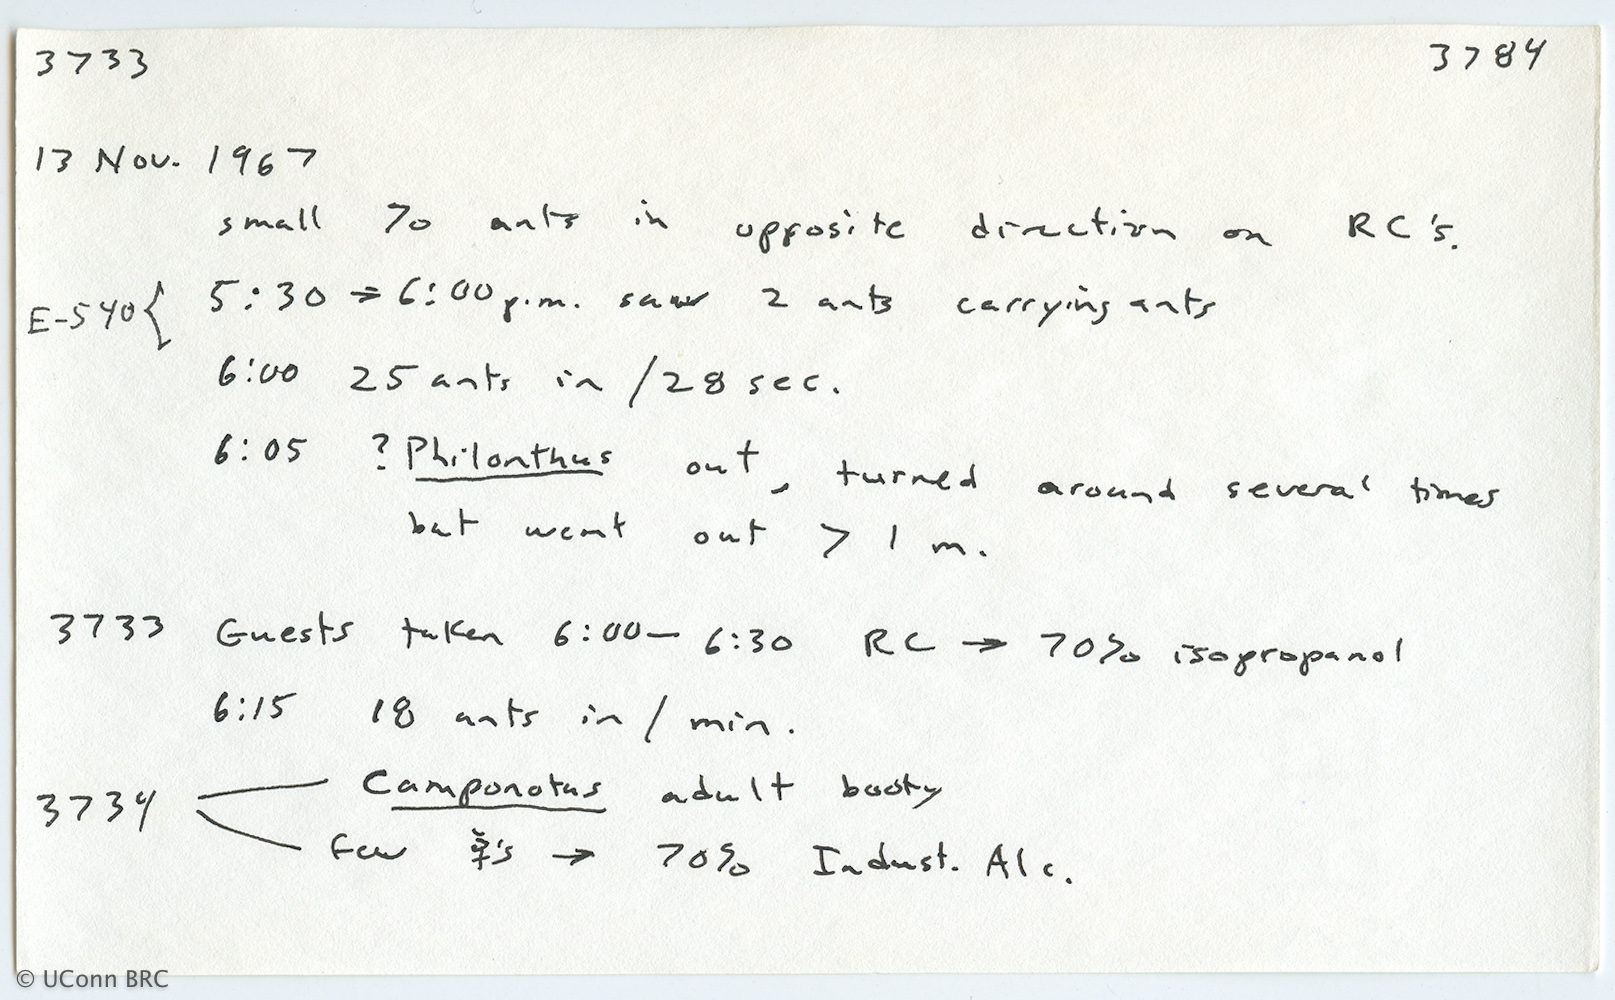 3733 3784
13 Nov. 1967
small % ants in opposite direction on RC's.
E-540 { 5:30 → 6:00 p.m. saw 2 ants carrying ants
6:00 25 ants in /28 sec.
6:05 ? Philonthus out, turned around several times
but went out > 1 m.
3733 Guests taken 6:00 – 6:30 RC → 70% isopropanol
6:15 18 ants in / min.
3734 Camponotus adult booty
Few ☿'s → 70% Indust. Alc.
© UConn BRC